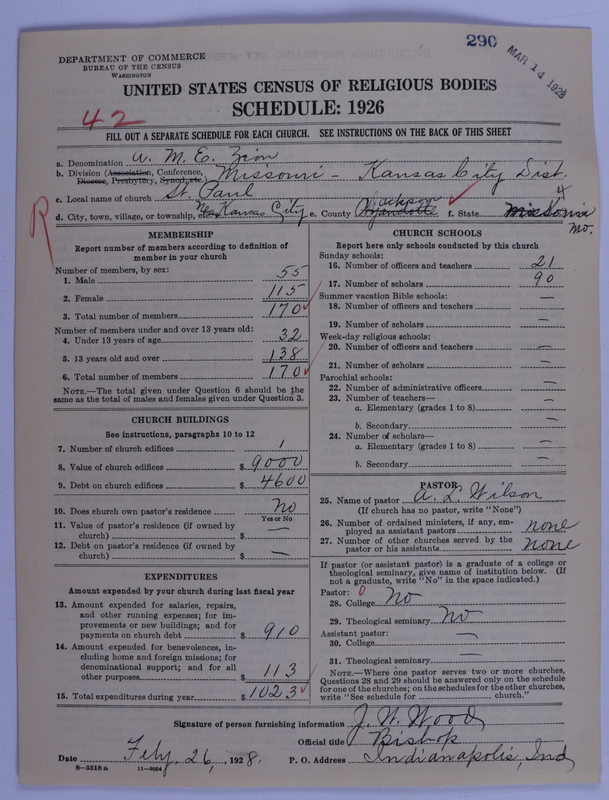 290
MAR 14 1928
DEPARTMENT OF COMMERCE
BUREAU OF THE CENSUS
WASHINGTON
UNITED STATES CENSUS OF RELIGIOUS BODIES
SCHEDULE: 1926
42
FILL OUT A SEPARATE SCHEDULE FOR EACH CHURCH. SEE INSTRUCTIONS ON THE BACK OF THIS SHEET
a. Denomination A. M. E. Zion
b. Division (Association, Conference, Diocese, Presbytery, Synod, etc.) Missouri - Kansas City Dist.
c. Local name of church St. Paul
d. City, town, village, or township, etc. Kansas City e. County Jackson Wyandotte f. State Mo.
4
R
MEMBERSHIP
Report number of members according to definition of member in your church
Number of members, by sex:
1. Male 55
2. Female 115
3. Total number of members 170
Number of members under and over 13 years old:
4. Under 13 years of age 32
5. 13 years old and over 138
6. Total number of members 170
NOTE.—The total given under Question 6 should be the same as the total of males and females given under Question 3.
CHURCH BUILDINGS
See instructions, paragraphs 10 to 12
7. Number of church edifices 1
8. Value of church edifices $ 9000
9. Debt on church edifices $ 4600
10. Does church own pastor's residence No
Yes or No
11. Value of pastor's residence (if owned by church) $ —
12. Debt on pastor's residence (if owned by church) $ —
EXPENDITURES
Amount expended by your church during last fiscal year
13. Amount expended for salaries, repairs, and other running expenses; for improvements or new buildings; and for payments on church debt $ 910
14. Amount expended for benevolences, including home and foreign missions; for denominational support; and for all other purposes $ 113
15. Total expenditures during year $ 1023
CHURCH SCHOOLS
Report here only schools conducted by this church
Sunday schools:
16. Number of officers and teachers 21
17. Number of scholars 90
Summer vacation Bible schools:
18. Number of officers and teachers —
19. Number of scholars —
Week-day religious schools:
20. Number of officers and teachers —
21. Number of scholars —
Parochial schools:
22. Number of administrative officers —
23. Number of teachers—
a. Elementary (grades 1 to 8) —
b. Secondary —
24. Number of scholars—
a. Elementary (grades 1 to 8) —
b. Secondary —
PASTOR
25. Name of pastor A. L. Wilson
(If church has no pastor, write "None")
26. Number of ordained ministers, if any, employed as assistant pastors none
27. Number of other churches served by the pastor or his assistants none
If pastor (or assistant pastor) is a graduate of a college or theological seminary, give name of institution below. (If not a graduate, write "No" in the space indicated.)
Pastor: 0
28. College No
29. Theological seminary No
Assistant pastor:
30. College —
31. Theological seminary —
NOTE.—Where one pastor serves two or more churches, Questions 28 and 29 should be answered only on the schedule for one of the churches; on the schedules for the other churches, write "See schedule for church."
Signature of person furnishing information J. W. Wood
Official title Bishop
Date Feby. 26, 1928. P. O. Address Indianapolis, Ind
8—3518 a 11—9024